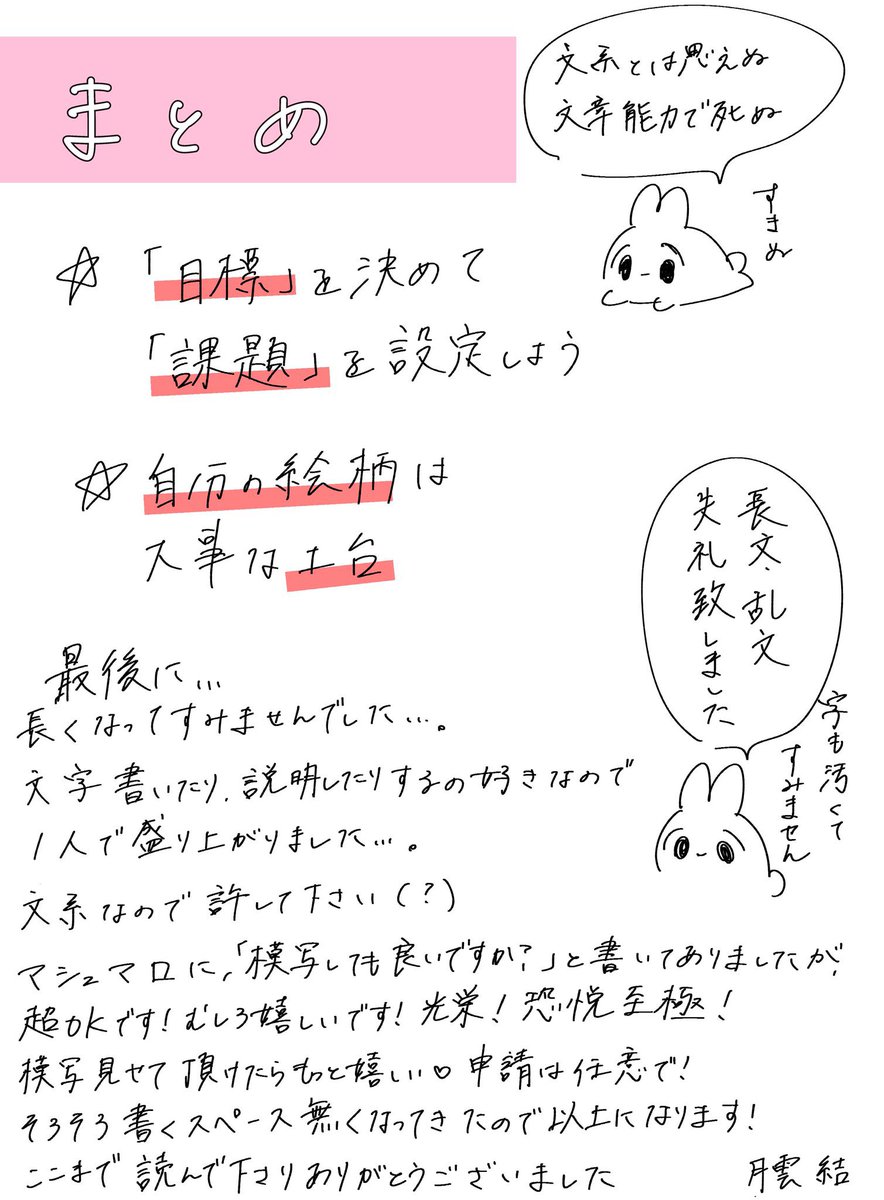 まとめ
文系とは思えぬ
文章能力で死ぬ
すきぬ
☆「目標」を決めて
「課題」を設定しよう
☆自分の絵柄は
大事な土台
長文、乱文
失礼致しました
字も汚くて
すみません
最後に…
長くなってすみませんでした…。
文字書いたり、説明したりするの好きなので
1人で盛り上がりました…。
文系なので許して下さい(?)
マシュマロに、「模写しても良いですか?」と書いてありましたが、
超OKです!むしろ嬉しいです!光栄!恐悦至極!
模写見せて頂けたらもっと嬉しい♡申請は任意で!
そろそろ書くスペース無くなってきたので以上になります!
ここまで読んで下さりありがとうございました
結